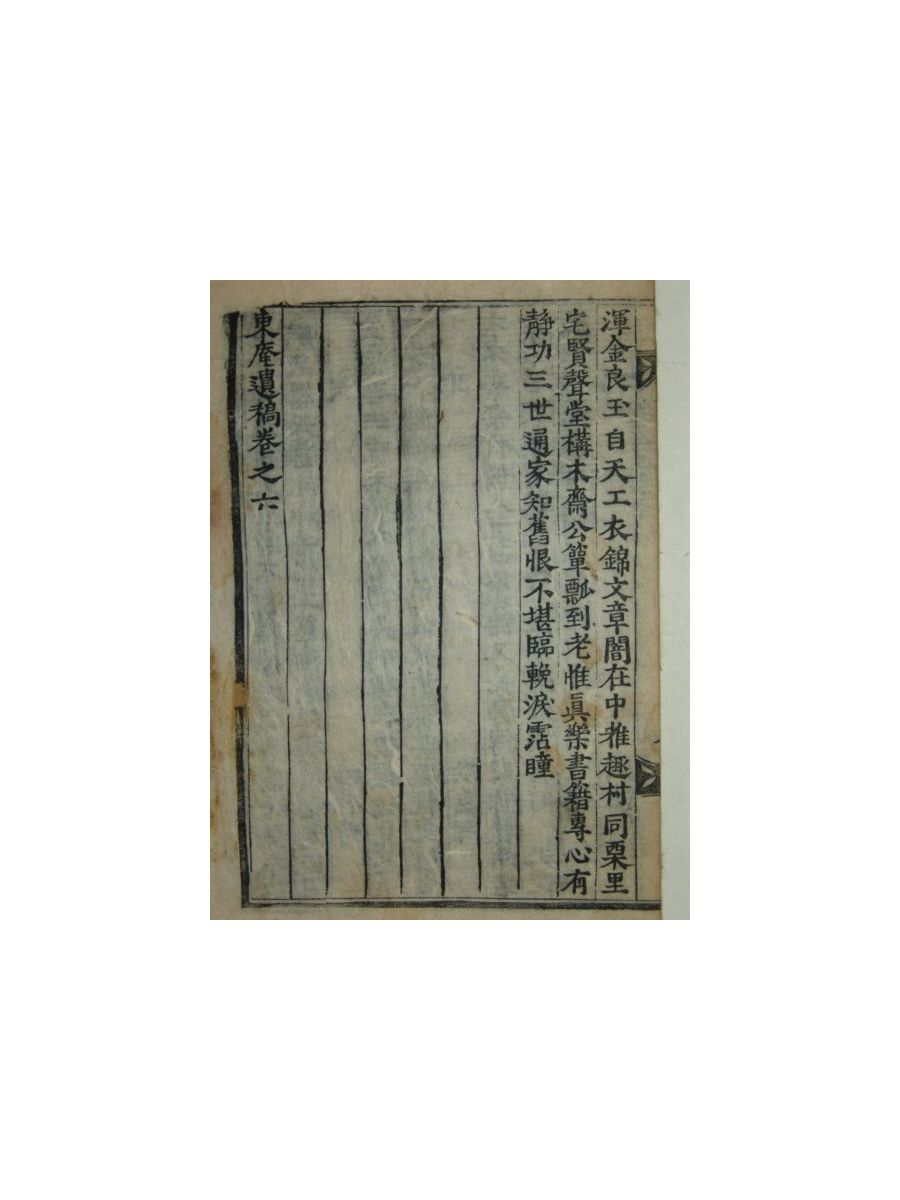 渾金良玉自天工衣錦文章闇在中雅趣村同栗里
宅賢聲堂構木齋公簞瓢到老惟眞樂書籍專心有
靜功三世通家知舊恨不堪臨輓淚霑瞳
東庵遺稿卷之六